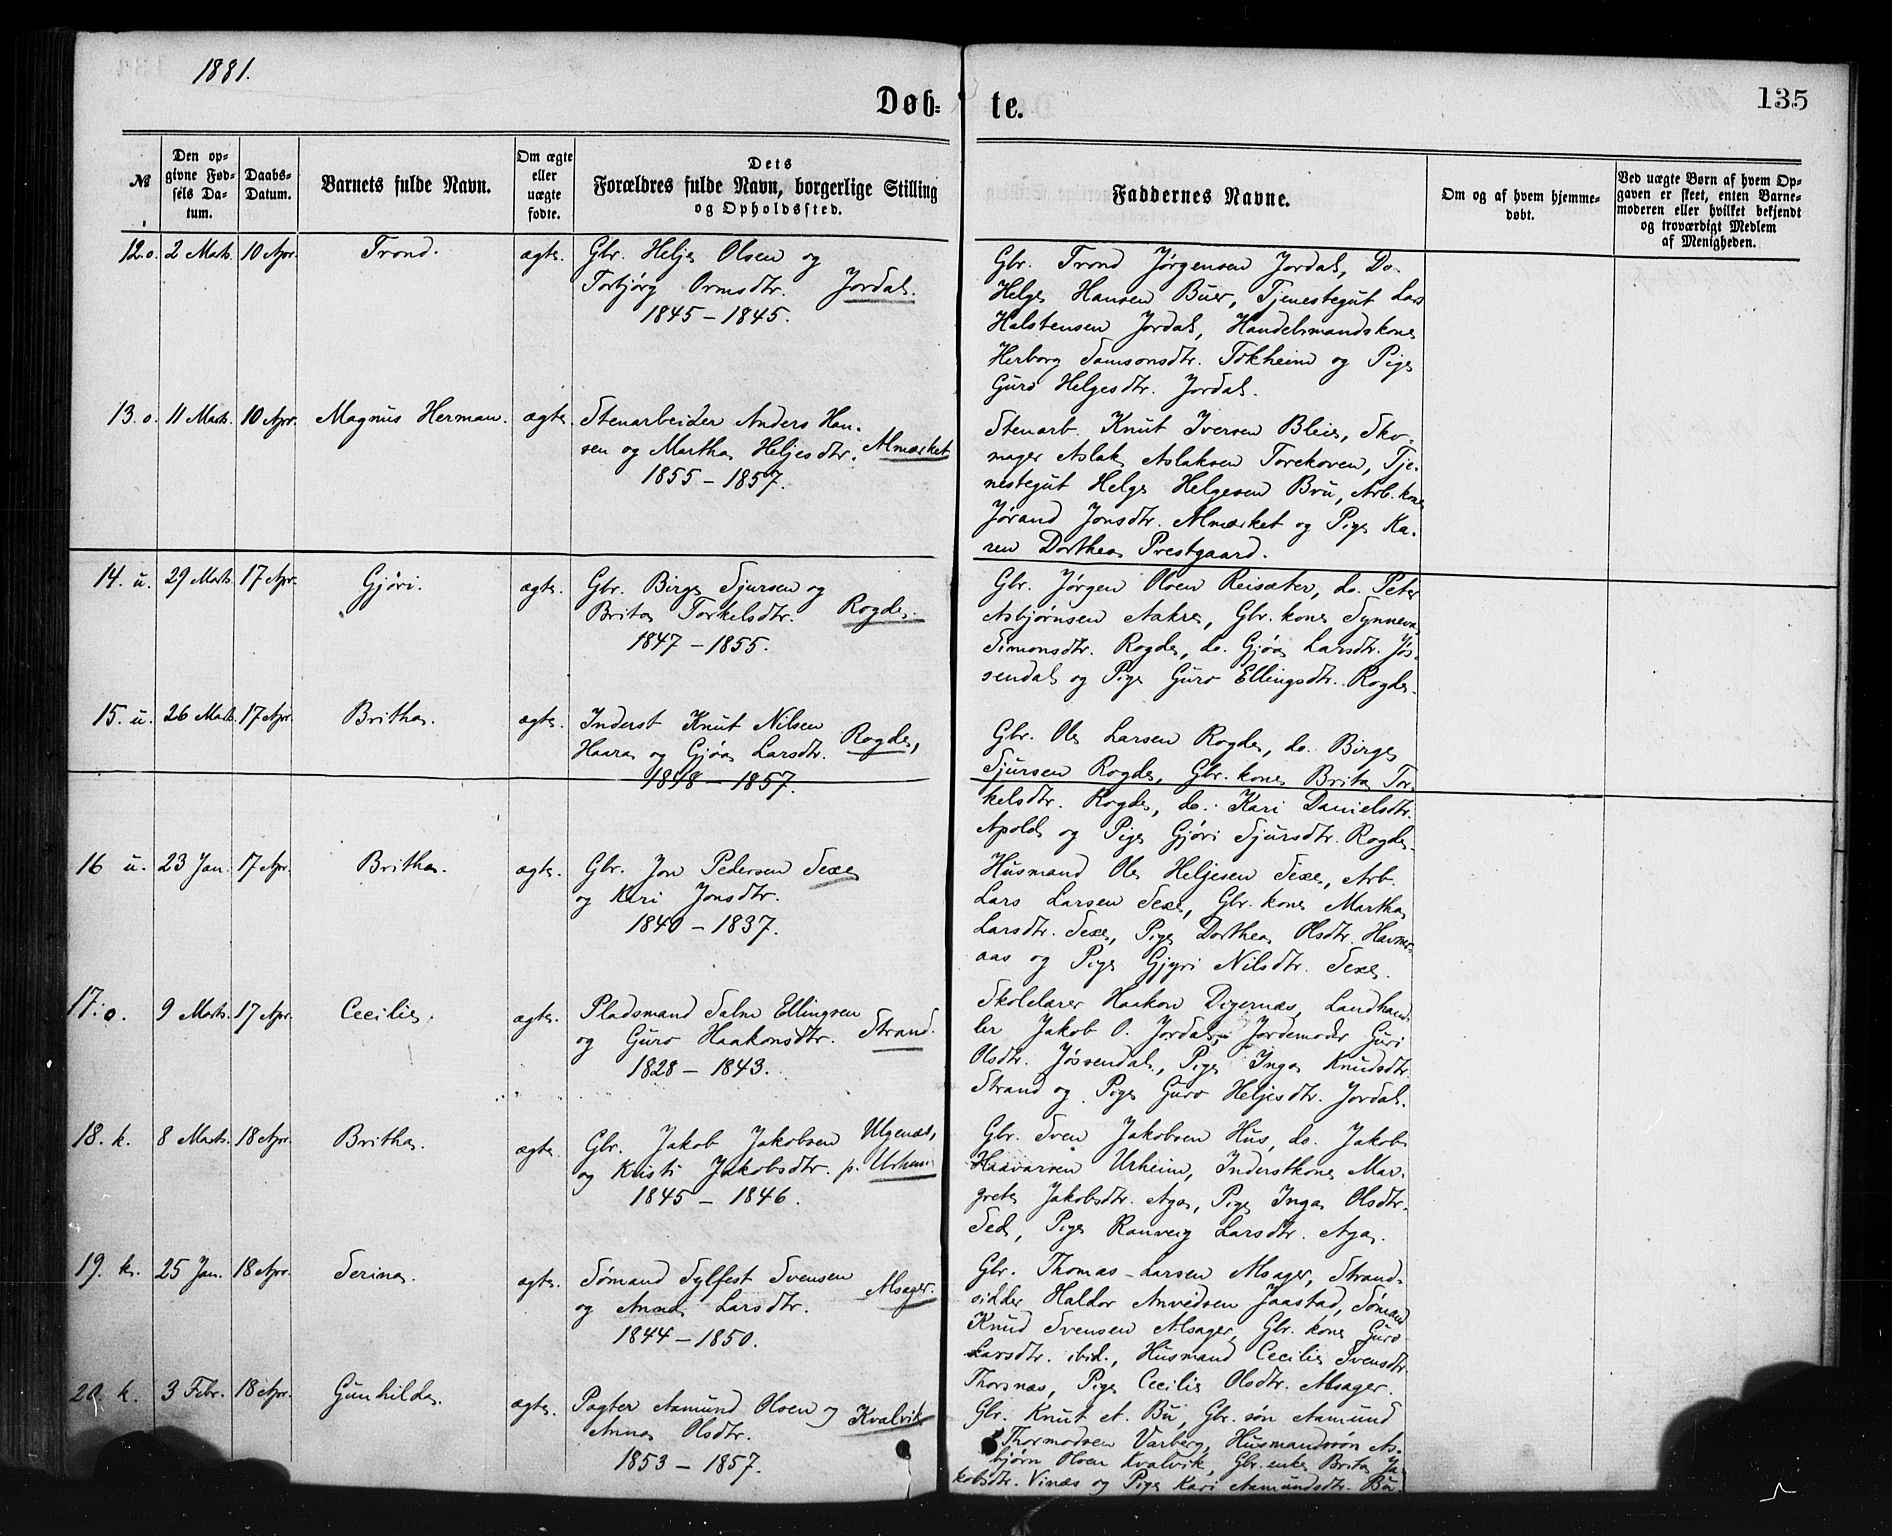 1881.
Døb-
te.
135
№
Den op-
givne Fød-
sels Da-
tum.
Daabs-
Datum.
Barnets fulde Navn.
Om ægte
eller
uægte
fødte.
Dets
Forældres fulde Navn, borgerlige Stilling
og Opholdssted.
Faddernes Navne.
Om og af hvem hjemme-
døbt.
Ved uægte Børn af hvem Op-
gaven er skeet, enten Barne-
moderen eller hvilket bekjendt
og troværdigt Medlem
af Menigheden.
12. o. 2 Marts. 10 Apr. Trond. ægte. Gbr. Helje Olsen og
Torbjørg Ormsdtr. Jordal.
1845 – 1845.
Gbr. Trond Jørgensen Jordal, Do.
Helge Hansen Buer, Tjenestegut Lars
Halstensen Jordal, Handelsmandskone
Herborg Samsonsdtr. Tokheim og Pige
Guro Helgesdtr. Jordal.
13. o. 11 Marts. 10 Apr. Magnus Herman. ægte. Stenarbeider Anders Han-
sen og Martha Heljesdtr. Almærket
1855 – 1857.
Stenarb. Knut Iversen Bleie, Sko-
mager Aslak Aslaksen Torekoven, Tje-
nestegut Helge Helgesen Bru, Arb. kone
Jørand Jonsdtr. Almærket og Pige Ka-
ren Dorthea Prestgaard.
14. u. 29 Marts. 17 Apr. Gjøri. ægte. Gbr. Birge Sjursen og
Brita Torkelsdtr. Rogde.
1847 – 1855.
Gbr. Jørgen Olsen Reisæter, do. Peter
Asbjørnsen Aakre, Gbr. kone Synneva
Simonsdtr. Rogde, do. Gjøa Larsdtr. Jøs-
sendal og Pige Guro Ellingsdtr. Rogde.
15. u. 26 Marts. 17 Apr. Britha. ægte. Inderst Knut Nilsen
Haara og Gjøa Larsdtr. Rogde,
1848 – 1857.
Gbr. Ole Larsen Rogde, do. Birge
Sjursen Rogde, Gbr. kone Brita Tor-
kelsdtr. Rogde, do. Kari Danielsdtr.
Apold og Pige Gjøri Sjursdtr. Rogde.
16 u. 23 Jan. 17 Apr. Britha. ægte. Gbr. Jon Pedersen Sexe
og Kari Jonsdtr.
1840 – 1837.
Husmand Ole Heljesen Sexe, Arb.
Lars Larsen Sexe, Gbr. kone Martha
Larsdtr. Sexe, Pige Dorthea Olsdtr. Havner-
aas og Pige Gjyri Nilsdtr. Sexe.
17. o. 9 Marts. 17 Apr. Cecilie. ægte. Pladsmand Salm Ellingsen
og Guro Haakonsdtr. Strand.
1828 – 1843.
Skolelærer Haakon Digernæs, Landhand-
ler Jakob O. Jordal, Jordemoder Guri
Olsdtr. Jøssendal, Pige Inga Knudsdtr.
Strand og Pige Guro Heljesdtr. Jordal.
18. k. 8 Marts. 18 Apr. Britha. ægte. Gbr. Jakob Jakobsen Ulgenæs,
og Kristi Jakobsdtr. p. Urheim
1845 – 1846.
Gbr. Sven Jakobsen Hus, do. Jakob
Haavarsen Urheim, Inderstkone Mar-
grete Jakobsdtr. Aga, Pige Inga Olsdtr.
Sed, Pige Ranveig Larsdtr. Aga.
19. k. 25 Jan. 18 Apr. Serina. ægte. Sømand Sylfest Svensen
og Anna Larsdtr. Alsager.
1844 – 1850.
Gbr. Thomas Larsen Alsager, Strand-
sidder Haldor Anvedsen Jaastad, Sømand
Knud Svensen Alsager, Gbr. kone Guro
Larsdtr. ibid., Husmand Cecilie Svensdtr.
Thorsnæs, Pige Cecilie Olsdtr. Alsager.
20. k. 3 Febr. 18 Apr. Gunhilda. ægte. Pagter Aamund Olsen og Kvalvik
Anna Olsdtr.
1853 – 1857.
Gbr. Knut A. Bu, Gbr. søn Aamund
Thormodsen Varberg, Husmandssøn As-
bjørn Olsen Kvalvik, Gbr. enke Brita Ja-
kobsdtr. Vinæs og Pige Kari Aamundsdtr. Bu.